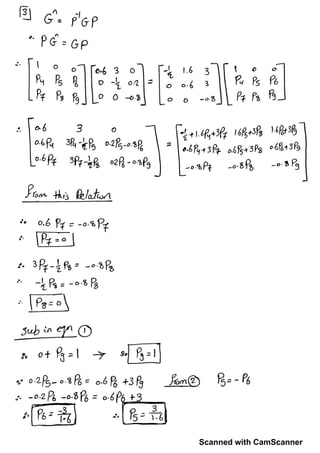 3 Ĝ = P⁻¹GP
∴ PĜ = GP
∴ [1 0 0; P4 P5 P6; P7 P8 P9] [0.6 3 0; 0 -½ 0.2; 0 0 -0.8] = [-½ 1.6 3; 0 0.6 3; 0 0 -0.8] [1 0 0; P4 P5 P6; P7 P8 P9]
∴ [0.6 3 0; 0.6P4 3P4-½P5 0.2P5-0.8P6; 0.6P7 3P7-½P8 0.2P8-0.8P9] = [-½+1.6P4+3P7 1.6P5+3P8 1.6P6+3P9; 0.6P4+3P7 0.6P5+3P8 0.6P6+3P9; -0.8P7 -0.8P8 -0.8P9]
From this Relation
∴ 0.6 P7 = -0.8P7
∴ P7=0
∴ 3P7-½P8 = -0.8P8
∴ -½P8 = -0.8P8
∴ P8=0
Sub in eqn ①
∴ 0+P9=1 → so P9=1
∴ 0.2P5-0.8P6 = 0.6P6+3P9 from ② P5=-P6
∴ -0.2P6-0.8P6 = 0.6P6+3
∴ P6=-3/1.6 ∴ P5=3/1.6
Scanned with CamScanner